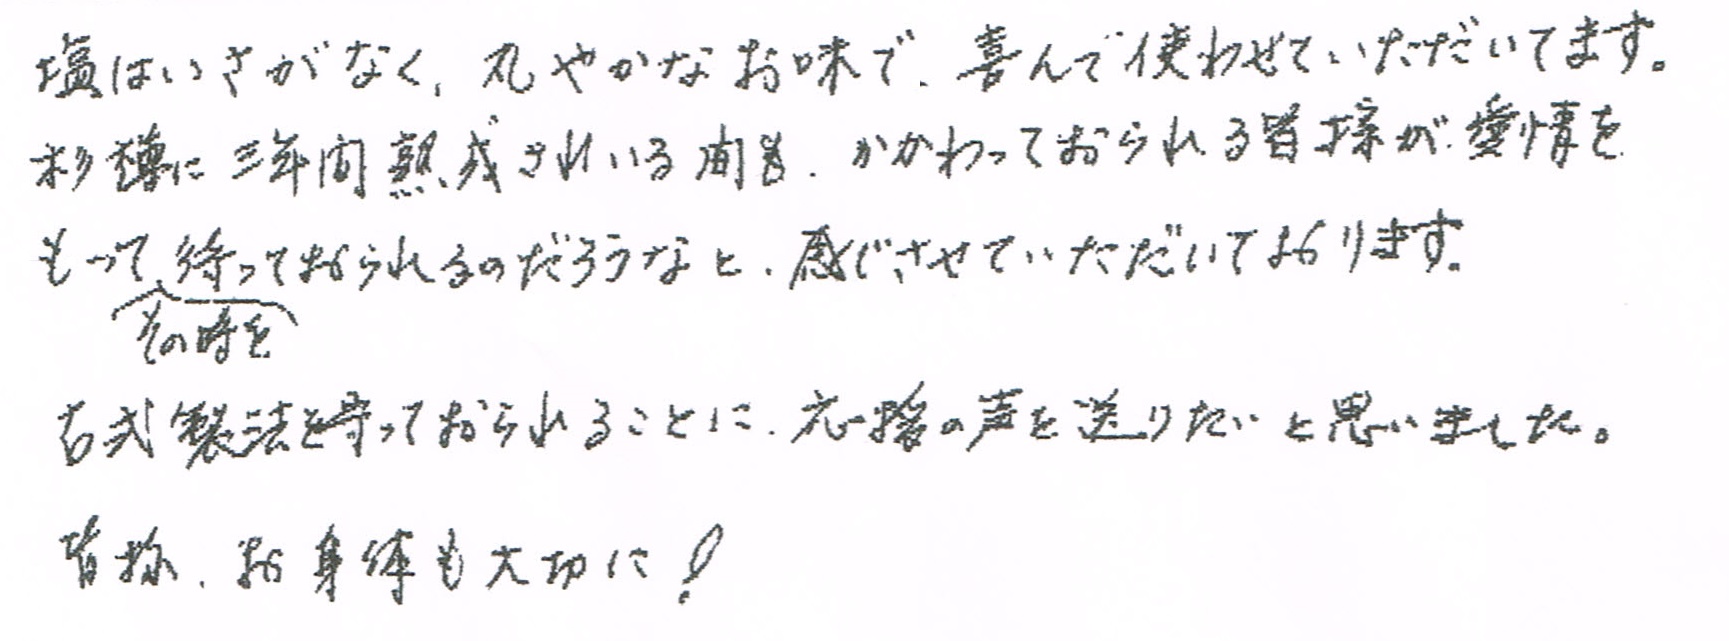 塩はいさがなく、丸やかなお味で、喜んで使わせていただいてます。
杉樽に三年間熟成されいる間も、かかわっておられる皆様が、愛情を
もって、待っておられるのだろうなと、感じさせていただいております。
その時を
古式製法を守っておられることに、応援の声を送りたいと思いました。
皆様、お身体も大切に!